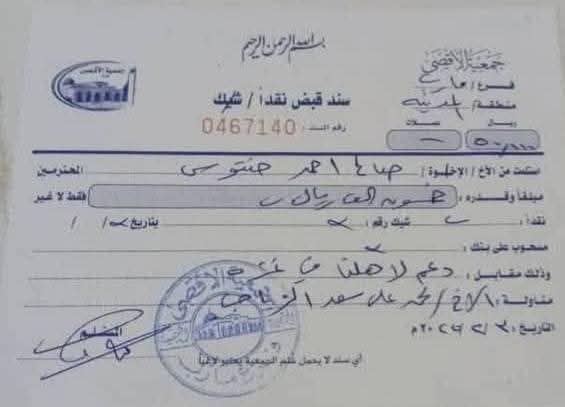 بسم الله الرحمن الرحيم
جمعية الأقصى
جمعية الأقصى
فرع / مارب
منطقة / المدينة
سند قبض نقداً / شيك
رقم السند : 0467140
ريال
فلس
٥٠٠٠٠
استلمت من الأخ / الإخوة / صالح احمد حنتوسي المحترمين
مبلغاً وقدره : خمسون الف ريال فقط لا غير
نقداً : شيك رقم : بتاريخ / /
مسحوب على بنك :
وذلك مقابل : دعم لاهلنا في غزة
مناولة : الاخ / محمد علي سعد
التاريخ : م
المستلم
أي سند لا يحمل ختم الجمعية يعتبر لاغياً